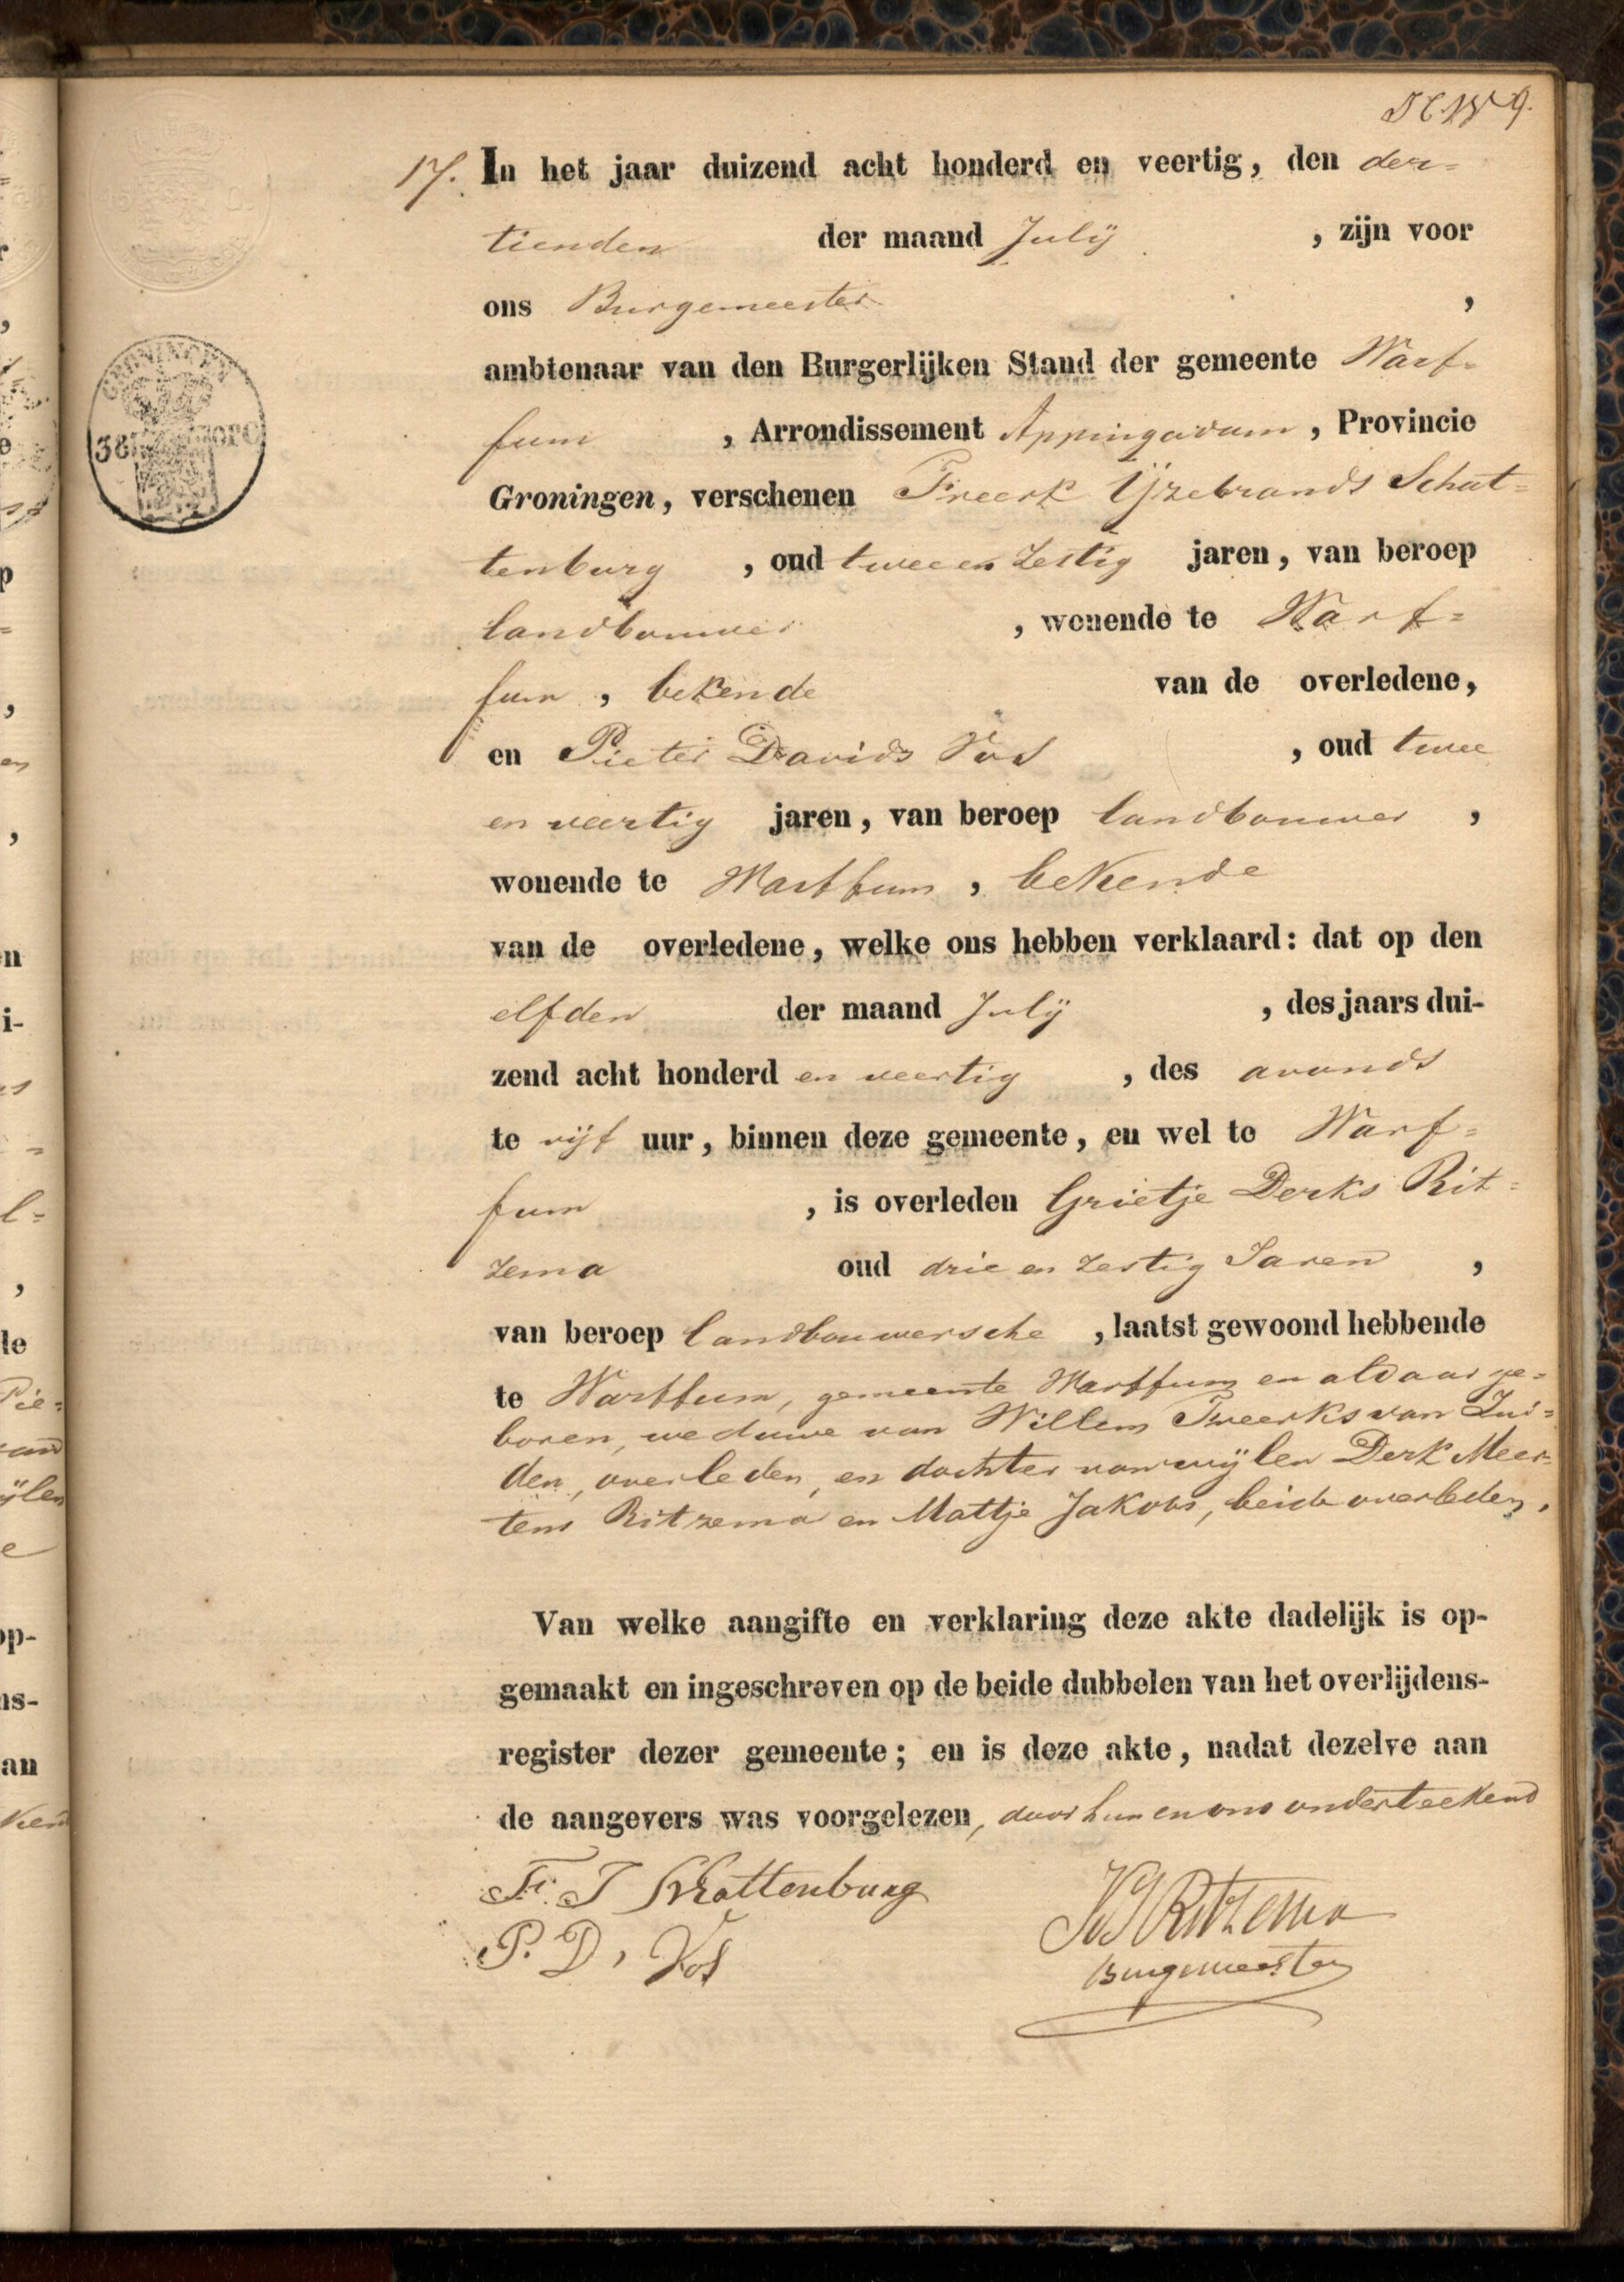 9.
17. In het jaar duizend acht honderd en veertig, den der=
tienden der maand Julij , zijn voor
ons Burgemeester ,
ambtenaar van den Burgerlijken Stand der gemeente Warf=
fum , Arrondissement Appingadam , Provincie
Groningen, verschenen Freerk IJzebrands Schat=
tenburg , oud twee en zestig jaren, van beroep
landbouwer , wonende te Warf=
fum , bekende van de overledene,
en Pieter Davids Vos , oud twee
en veertig jaren, van beroep landbouwer ,
wonende te Warffum , bekende
van de overledene, welke ons hebben verklaard: dat op den
elfden der maand Julij , des jaars dui-
zend acht honderd en veertig , des avonds
te vijf uur, binnen deze gemeente, en wel te Warf=
fum , is overleden Grietje Derks Rit=
zema oud drie en zestig Jaren ,
van beroep landbouwersche , laatst gewoond hebbende
te Warffum, gemeente Warffum en aldaar ge=
boren, weduwe van Willem Tweerks van Zui=
den, overleden, en dochter van wijlen Derk Meer=
tens Ritzema en Mattje Jakobs, beide overleden.
Van welke aangifte en verklaring deze akte dadelijk is op-
gemaakt en ingeschreven op de beide dubbelen van het overlijdens-
register dezer gemeente; en is deze akte, nadat dezelve aan
de aangevers was voorgelezen, door hun en ons onderteekend
Fr. I Schattenburg
P. D. Vos
Ritzema
Burgemeester
GRONINGEN
38